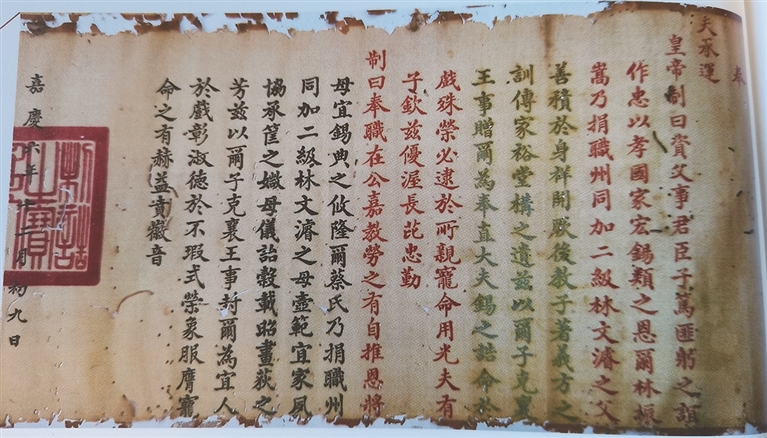 奉
天承運
皇帝制曰資父事君臣子篤匪躬之誼
作忠以孝國家宏錫類之恩爾林振
嵩乃捐職州同加二級林文濬之父
善積於身祥開厥後教子著義方之
訓傳家裕堂構之遺茲以爾子克襄
王事贈爾為奉直大夫錫之誥命於
戲殊榮必逮於所親寵命用光夫有
子欽茲優渥長茈忠勤
制曰奉職在公嘉教勞之有自推恩將
母宜錫典之攸隆爾蔡氏乃捐職州
同加二級林文濬之母壼範宜家夙
協承筐之媺母儀詒穀載昭畫荻之
芳茲以爾子克襄王事封爾為宜人
於戲彰淑德於不瑕式榮象服膺寵
命之有赫益賁徽音
嘉慶六年月初九日
制誥之寶